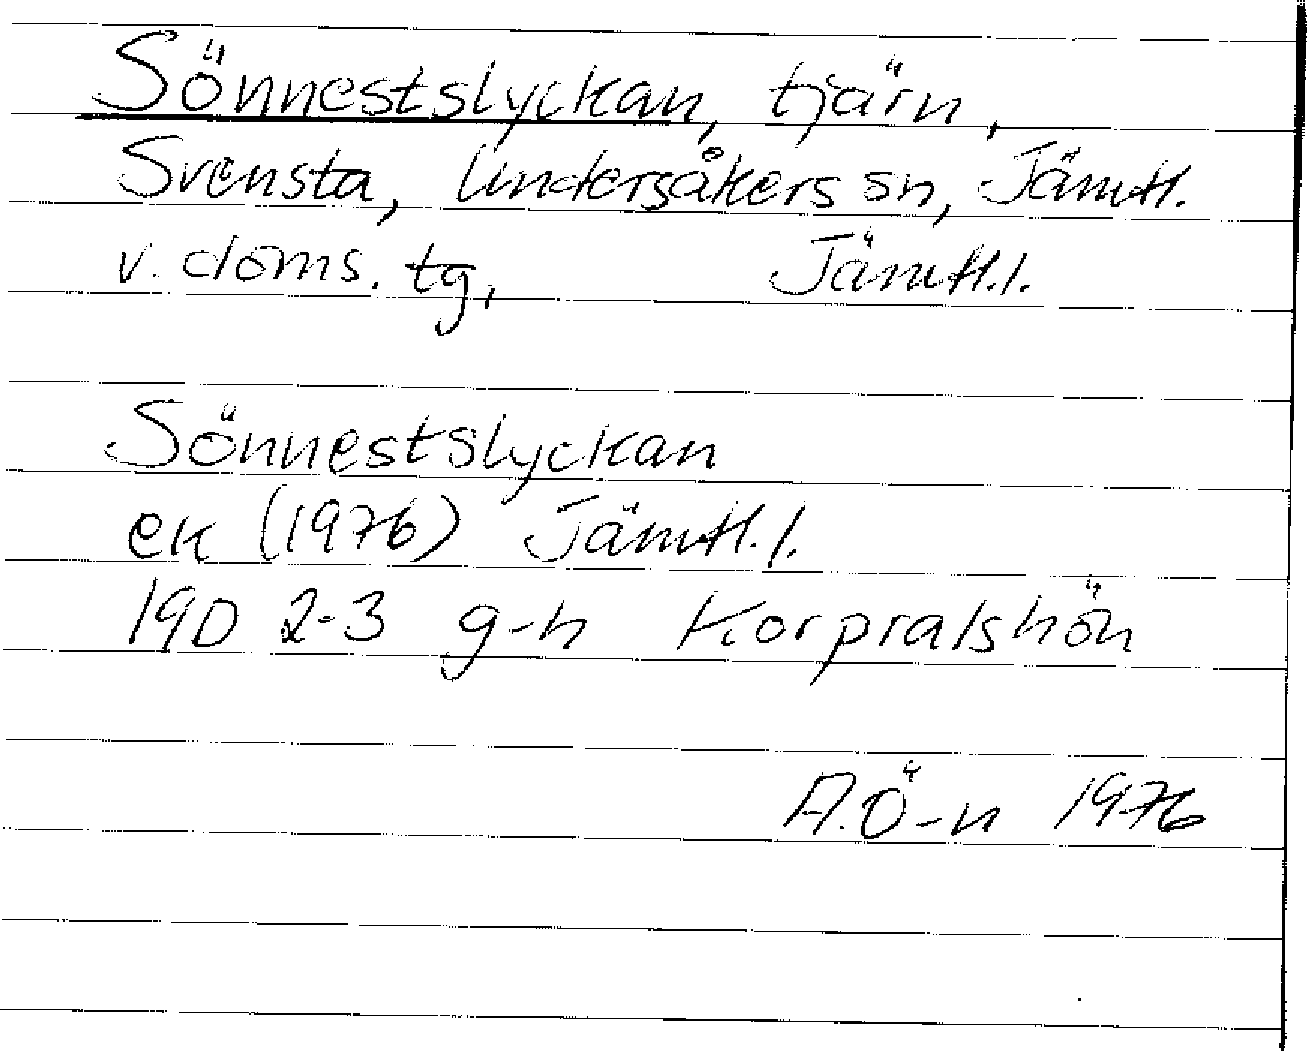 Sönnestslyckan, tjärn,
Svensta, Undersåkers sn, Jämtl.
v. doms. tg, Jämtl.l.
Sönnestslyckan
ek (1976) Jämtl.l.
19D 2-3 g-h Korpralshön
A.Ö-n 1976